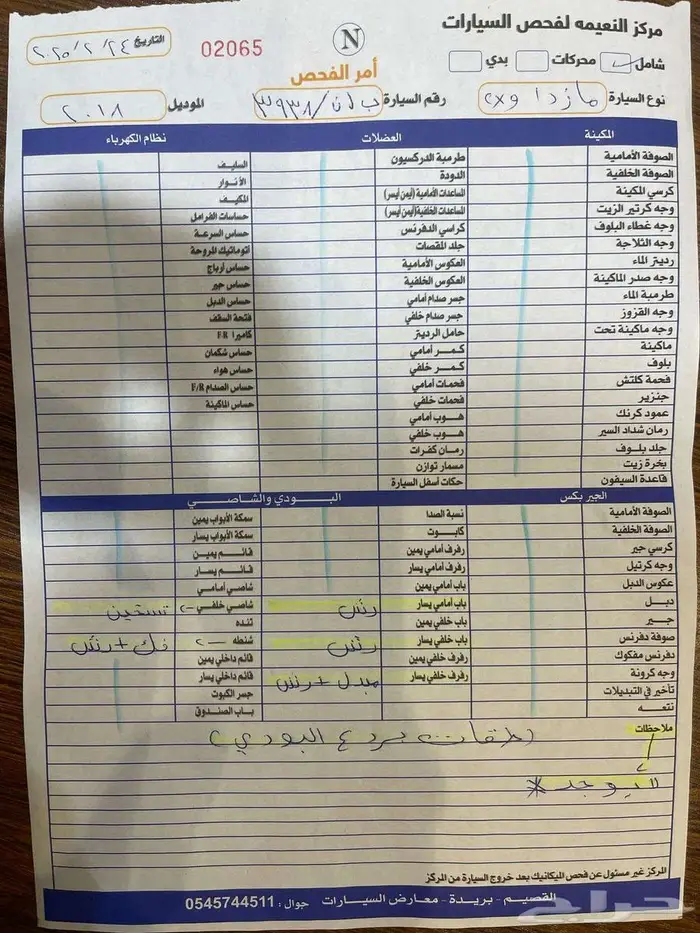 مركز النعيمه لفحص السيارات
N
02065
التاريخ ٢٤/ ٢/ ٢٠٢٥
شامل محركات بدي
أمر الفحص
نوع السيارة مازدا cx9
رقم السيارة ٣٩٣٨
الموديل ٢٠١٨
المكينة العضلات نظام الكهرباء
الصوفة الأمامية طرمبة الدركسيون السليف
الصوفة الخلفية الدودة الأنوار
كرسي المكينة المساعدات الأمامية (أيمن أيسر) المكيف
وجه كرتير الزيت المساعدات الخلفية (أيمن أيسر) حساسات الفرامل
وجه غطاء البلوف كراسي الدفرنس حساس السرعة
وجه الثلاجة جلد المقصات أتوماتيك المروحة
رديتر الماء العكوس الأمامية حساس أرباج
وجه صدر الماكينة العكوس الخلفية حساس جير
طرمبة الماء جسر صدام أمامي حساس الدبل
وجه القزوز جسر صدام خلفي فتحة السقف
وجه ماكينة تحت حامل الرديتر كاميرا F-R
ماكينة كمر أمامي حساس شكمان
بلوف كمر خلفي حساس هواء
فحمة كلتش فحمات أمامي حساس الصدام F/R
جنزير فحمات خلفي حساس الماكينة
عمود كرنك هوب أمامي
رمان شداد السير هوب خلفي
جلد بلوف رمان كفرات
بخرة زيت مسمار توازن
قاعدة السيفون حكات أسفل السيارة
الجير بكس البودي والشاصي
الصوفة الأمامية نسبة الصدا سمكة الأبواب يمين
الصوفة الخلفية كابوت سمكة الأبواب يسار
كرسي جير رفرف أمامي يمين قائم يمين
وجه كرتيل رفرف أمامي يسار قائم يسار
عكوس الدبل باب أمامي يمين شاصي أمامي
دبل باب أمامي يسار رش شاصي خلفي
جير باب خلفي يمين تنده
صوفة دفرنس باب خلفي يسار رش شنطه فك + رش
دفرنس مفكوك رفرف خلفي يمين قائم داخلي يمين
وجه كرونة رفرف خلفي يسار مبدل + رش قائم داخلي يسار
تأخير في التبديلات جسر الكبوت
نتعه باب الصندوق
ملاحظات
لا يوجد
المركز غير مسئول عن فحص الميكانيك بعد خروج السيارة من المركز
القصيم - بريدة - معارض السيارات جوال : 0545744511
حراج